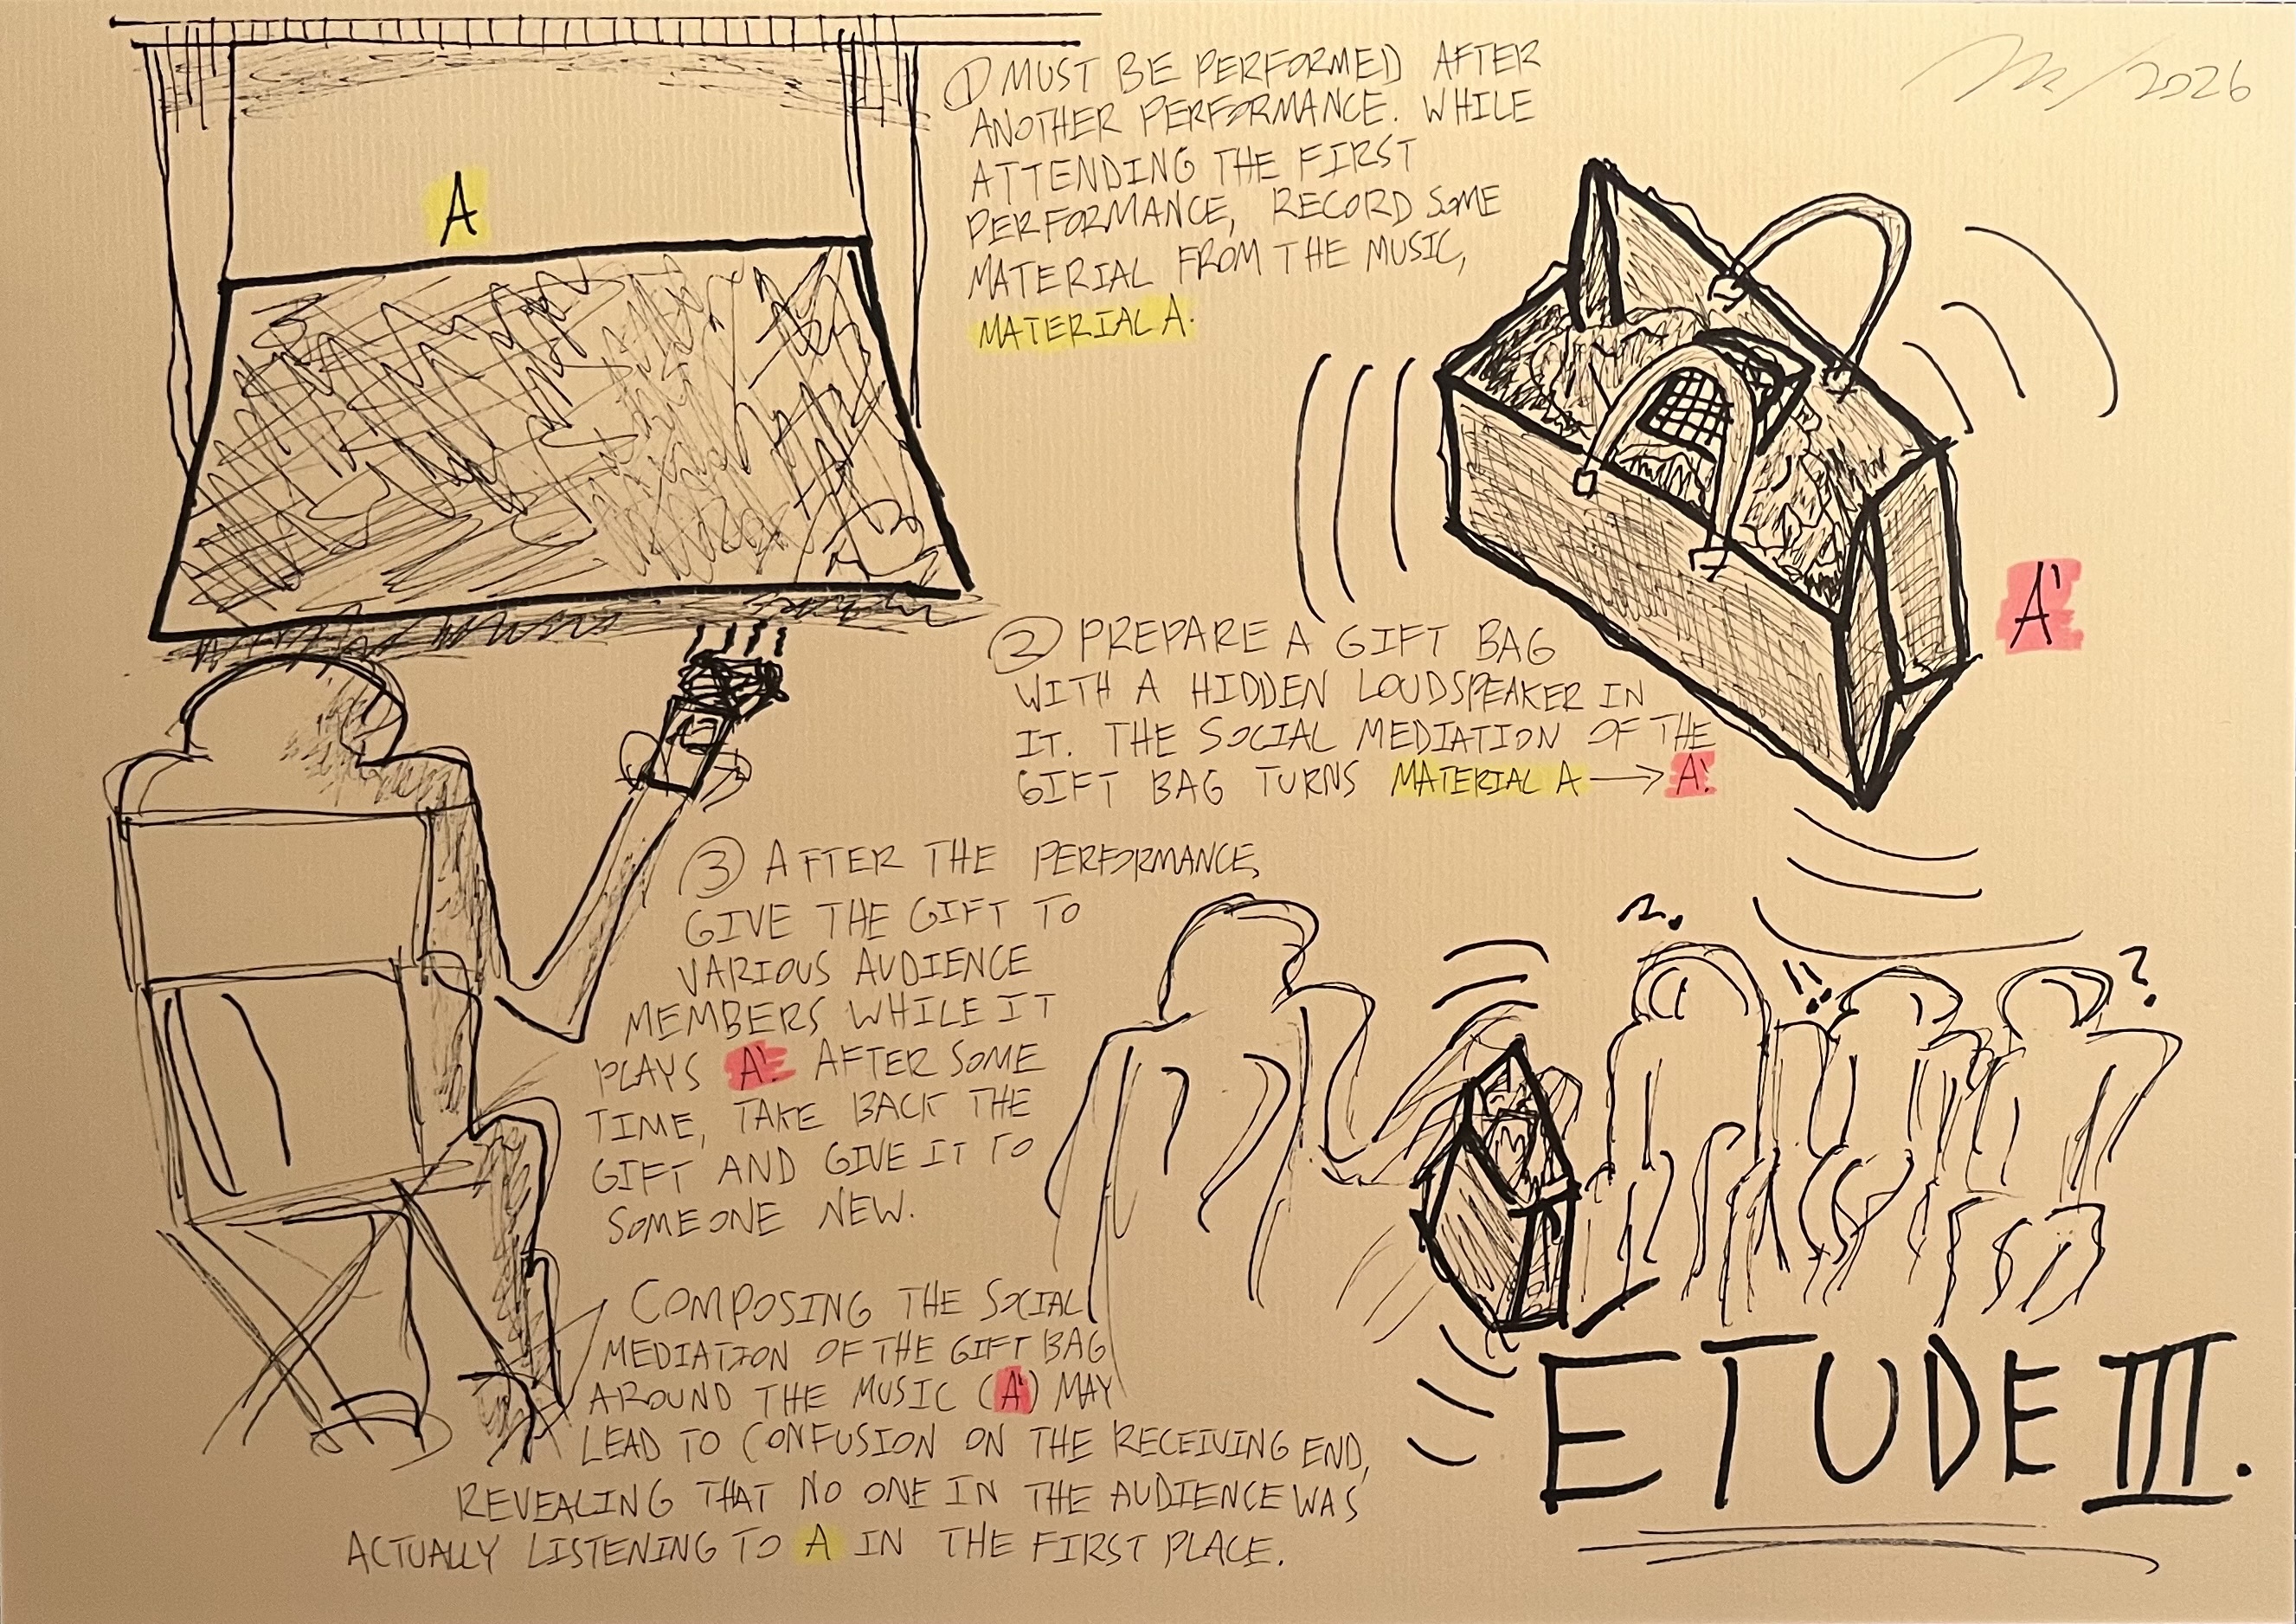 A
① MUST BE PERFORMED AFTER
ANOTHER PERFORMANCE. WHILE
ATTENDING THE FIRST
PERFORMANCE, RECORD SOME
MATERIAL FROM THE MUSIC,
MATERIAL A.
/2026
A'
② PREPARE A GIFT BAG
WITH A HIDDEN LOUDSPEAKER IN
IT. THE SOCIAL MEDIATION OF THE
GIFT BAG TURNS MATERIAL A → A'.
③ AFTER THE PERFORMANCE,
GIVE THE GIFT TO
VARIOUS AUDIENCE
MEMBERS WHILE IT
PLAYS A'. AFTER SOME
TIME, TAKE BACK THE
GIFT AND GIVE IT TO
SOMEONE NEW.
?
!!
?
COMPOSING THE SOCIAL
MEDIATION OF THE GIFT BAG
AROUND THE MUSIC (A') MAY
LEAD TO CONFUSION ON THE RECEIVING END,
REVEALING THAT NO ONE IN THE AUDIENCE WAS
ACTUALLY LISTENING TO A IN THE FIRST PLACE.
ETUDE III.